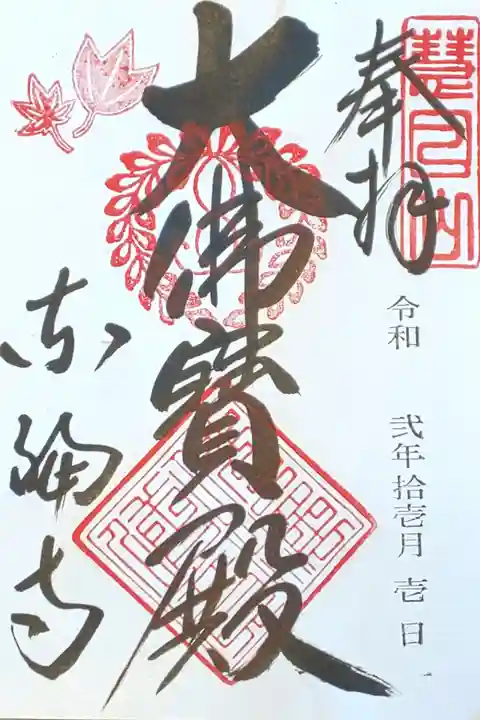 慧日山
奉拝
令和 弐年拾壱月壱日
大佛寶殿
東福寺